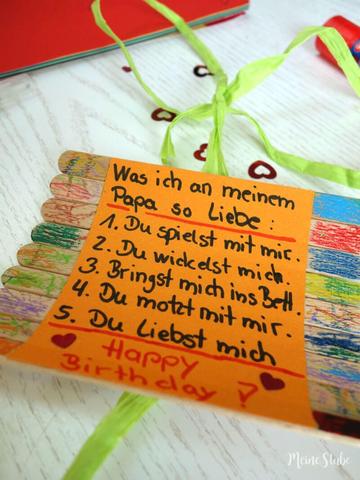 Was ich an meinem
Papa so Liebe :
1. Du spielst mit mir.
2. Du wickelst mich.
3. Bringst mich ins Bett.
4. Du motzt mit mir.
5. Du Liebst mich
Happy
Birthday ?
Meine Stube